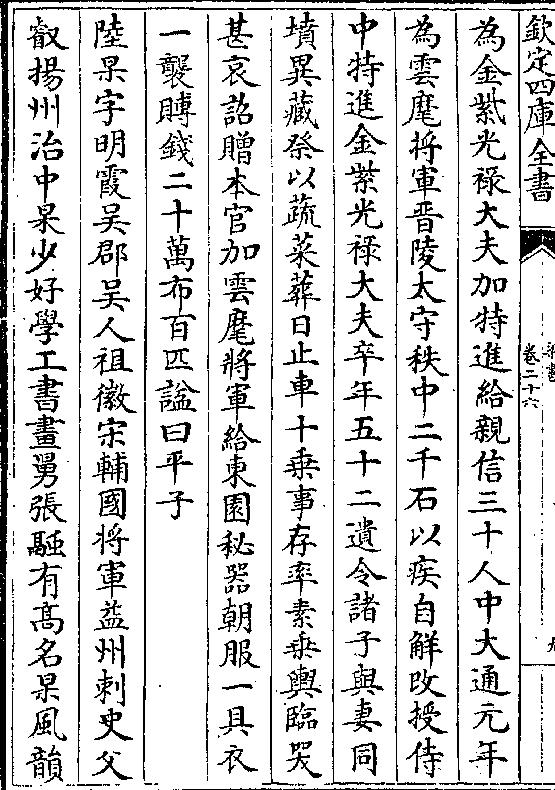 欽定四庫全書
卷二十六
為金紫光祿大夫加特進給親信三十人中大通元年
為雲麾將軍晉陵太守秩中二千石以疾自解改授侍
中特進金紫光祿大夫卒年五十二遺令諸子與妻同
墳異藏祭以蔬菜葬日止車十乗事存率素乗輿臨哭
甚哀詔贈本官加雲麾將軍給東園秘器朝服一具衣
一襲賻錢二十萬布百匹諡曰平子
陸杲字明霞吳郡吳人祖徽宋輔國將軍益州刺史父
叡揚州治中杲少好學工書畫舅張融有髙名杲風韻